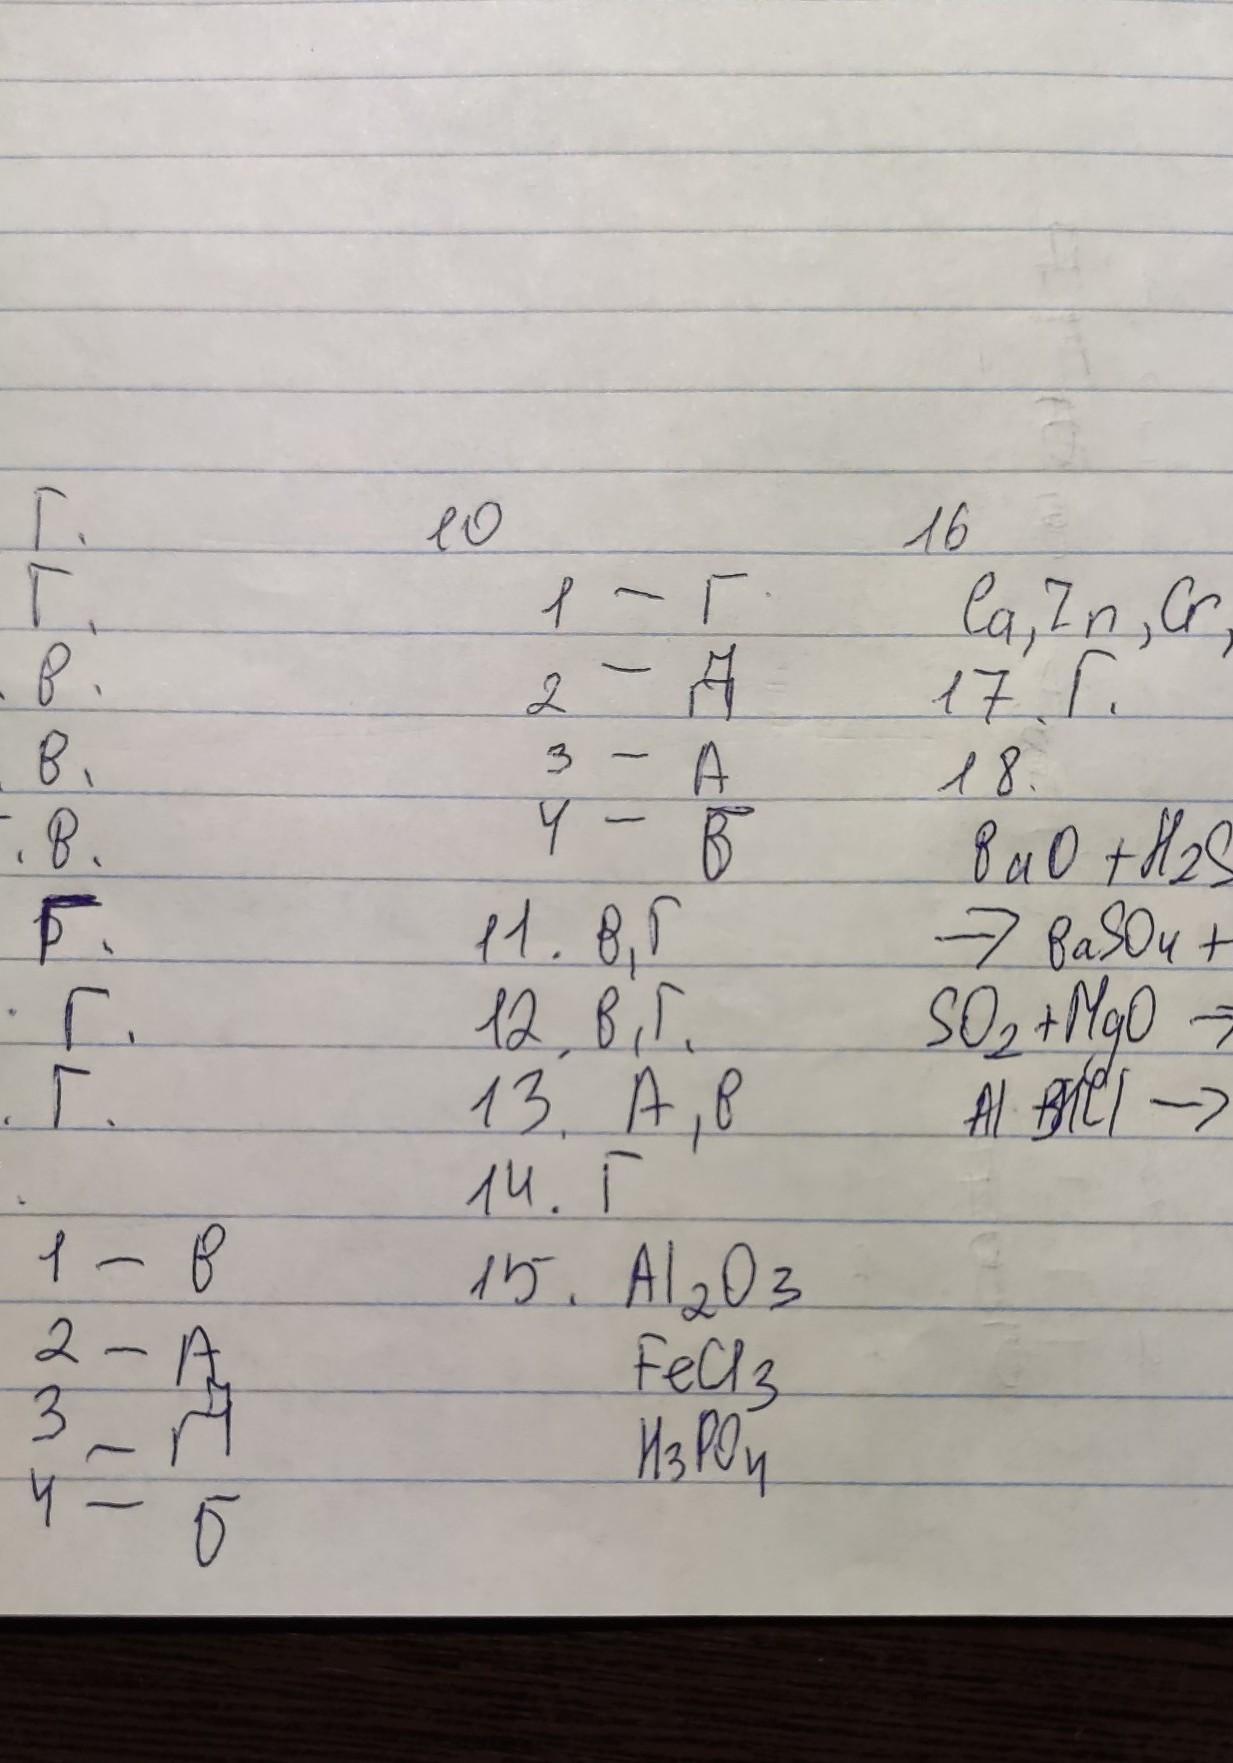 Г.
Г.
В.
В.
. В.
Г.
Г.
. Г.
1 – В
2 – А
3 – Д
4 – Б
10
1 – Г
2 – Д
3 – А
4 –
11. В, Г
12. В, Г.
13. А, В
14. Г
15. Al2O3
FeCl3
H3PO4
16
Ca, Zn, Cr,
17. Г.
18.
BaO + H2S
→ BaSO4 +
SO2 + MgO →
Al HCl →